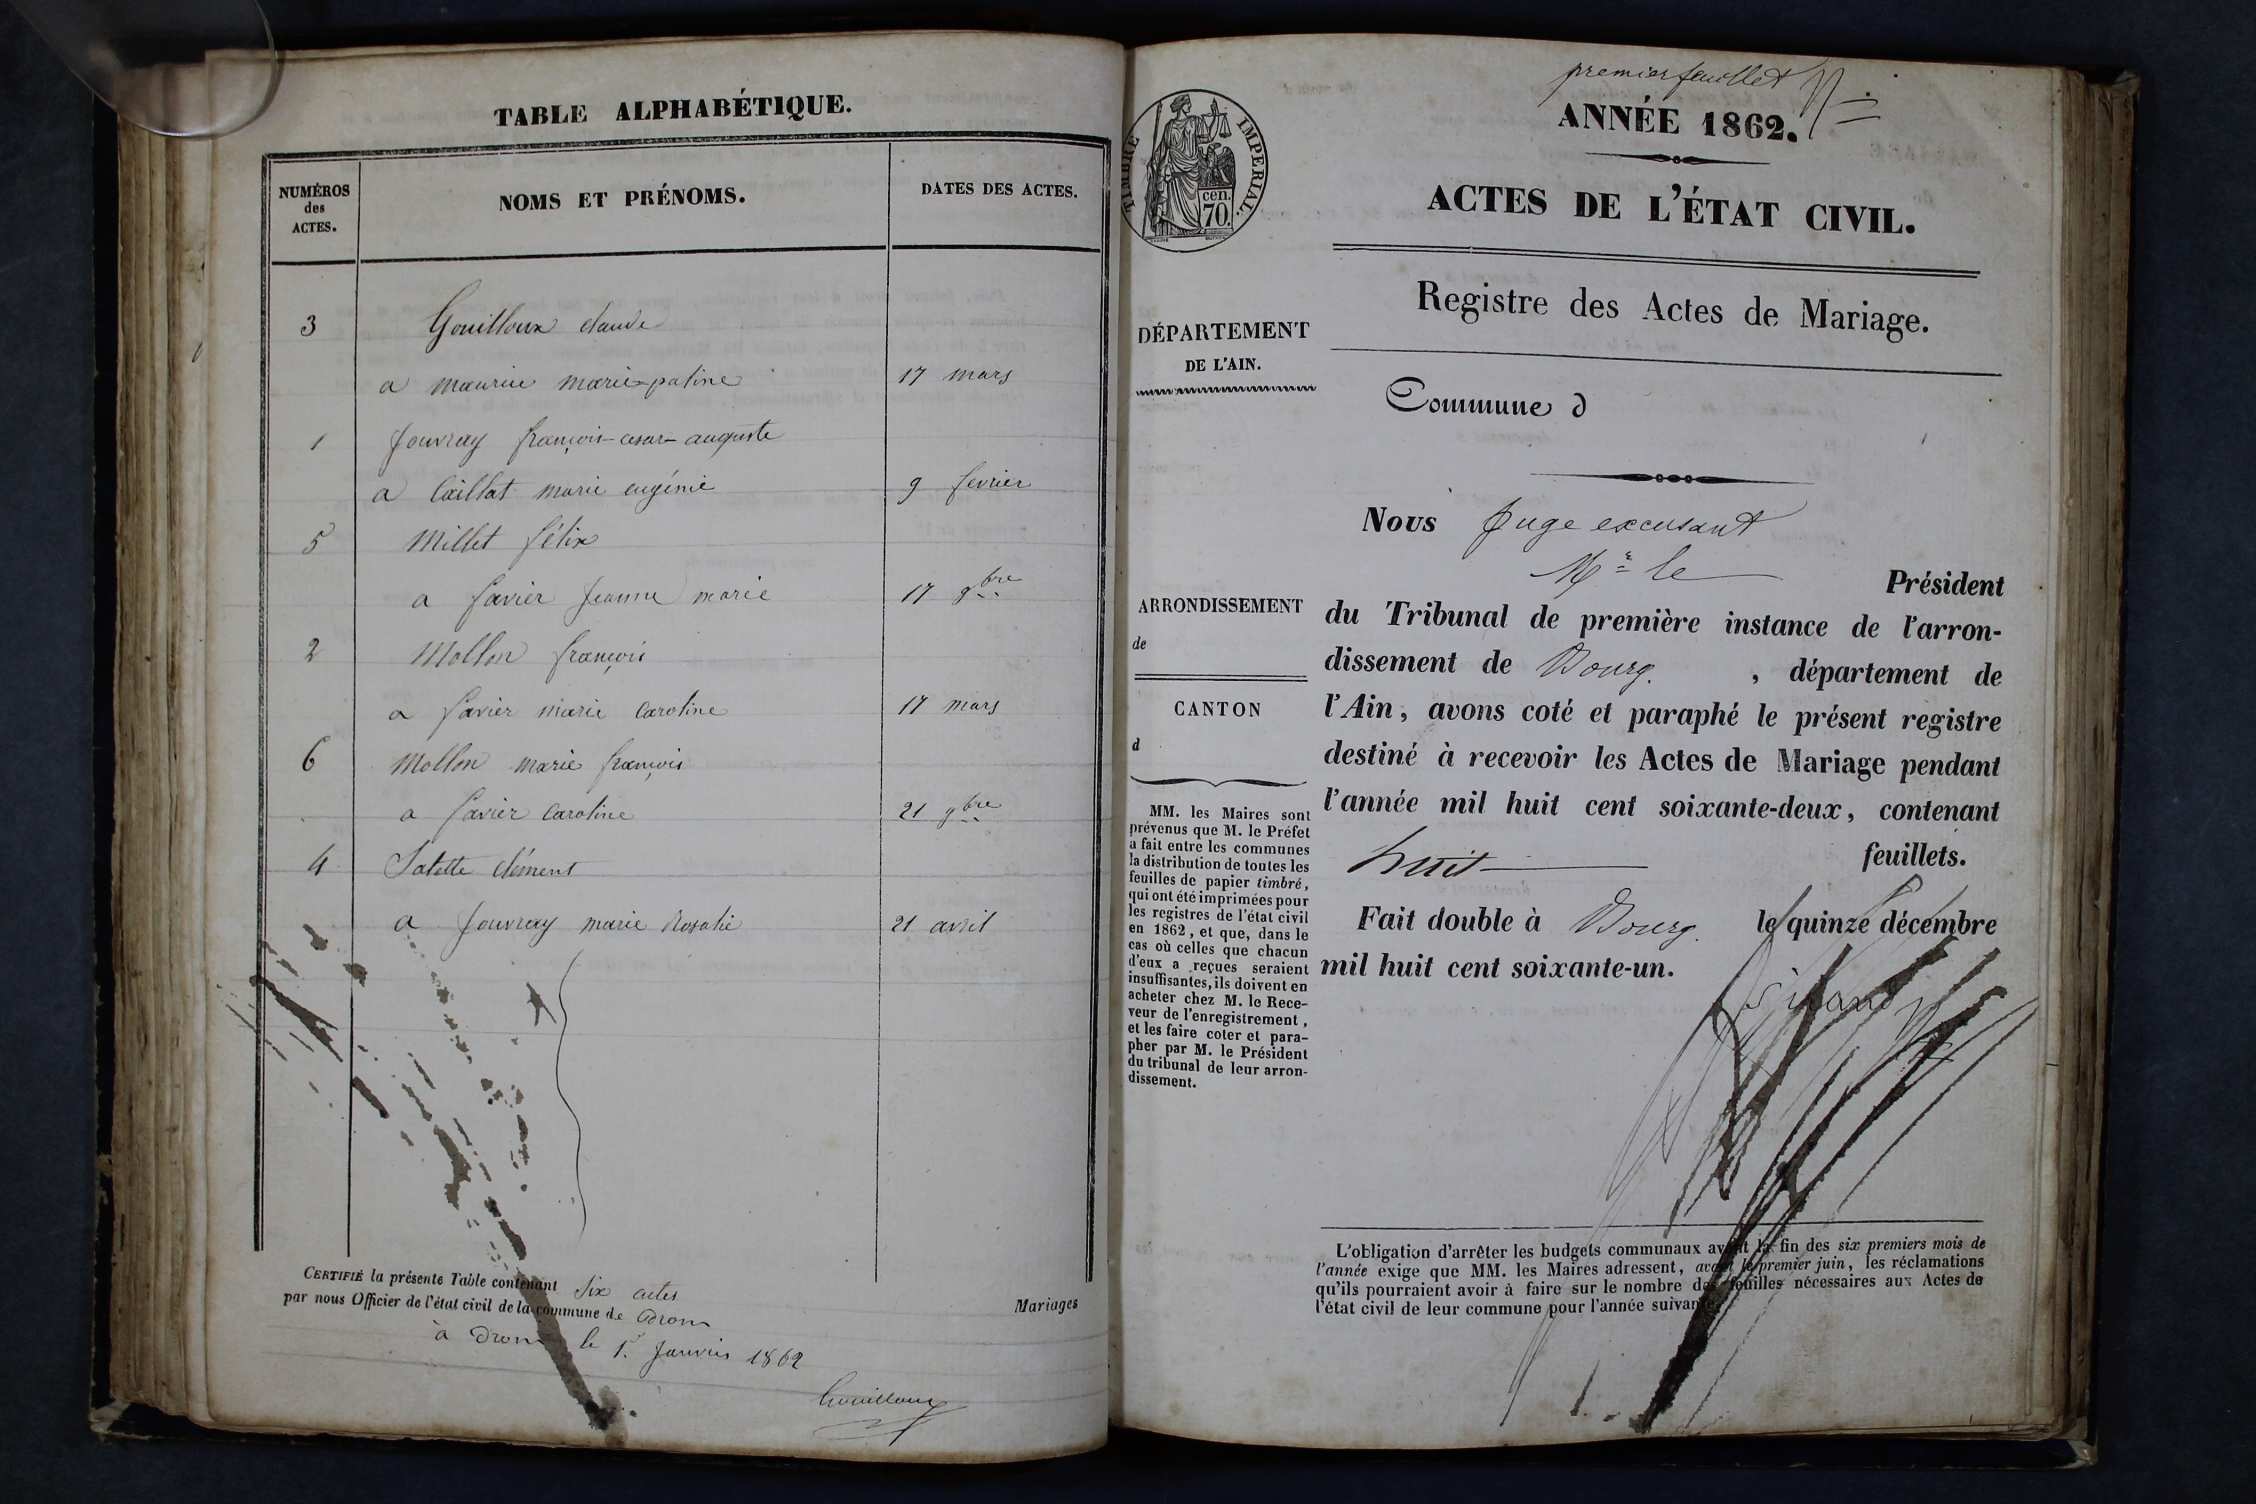 TABLE ALPHABÉTIQUE.
NUMÉROS
des
ACTES.
NOMS ET PRÉNOMS.
DATES DES ACTES.
3 Gouilloux claude
a maurice marie-paline 17 mars
1 Jouvray françois-cesar-auguste
a Caillat marie eugénie 9 fevrier
5 Millet félix
a favier Jeanne marie 17 9bre
2 Mollon françois
a favier marie caroline 17 mars
6 Mollon marie françois
a favier caroline 21 9bre
4 Salette clément
a Jouvray marie Rosalie 21 avril
CERTIFIÉ la présente Table contenant Six actes
par nous Officier de l'état civil de la commune de Drom
à Drom le 1er Janvier 1862
Mariages
Gouilloux
premier feuillet
ANNÉE 1862.
TIMBRE IMPERIAL.
cen.
70.
ACTES DE L'ÉTAT CIVIL.
Registre des Actes de Mariage.
DÉPARTEMENT
DE L'AIN.
Commune d
Nous Juge excusant
Mr le
Président
ARRONDISSEMENT
de
CANTON
d
du Tribunal de première instance de l'arron-
dissement de Bourg. , département de
l'Ain, avons coté et paraphé le présent registre
destiné à recevoir les Actes de Mariage pendant
l'année mil huit cent soixante-deux, contenant
huit feuillets.
Fait double à Bourg. le quinze décembre
mil huit cent soixante-un.
MM. les Maires sont
prévenus que M. le Préfet
a fait entre les communes
la distribution de toutes les
feuilles de papier timbré,
qui ont été imprimées pour
les registres de l'état civil
en 1862, et que, dans le
cas où celles que chacun
d'eux a reçues seraient
insuffisantes, ils doivent en
acheter chez M. le Rece-
veur de l'enregistrement,
et les faire coter et para-
pher par M. le Président
du tribunal de leur arron-
dissement.
L'obligation d'arrêter les budgets communaux avant la fin des six premiers mois de
l'année exige que MM. les Maires adressent, avant le premier juin, les réclamations
qu'ils pourraient avoir à faire sur le nombre des feuilles nécessaires aux Actes de
l'état civil de leur commune pour l'année suivante.